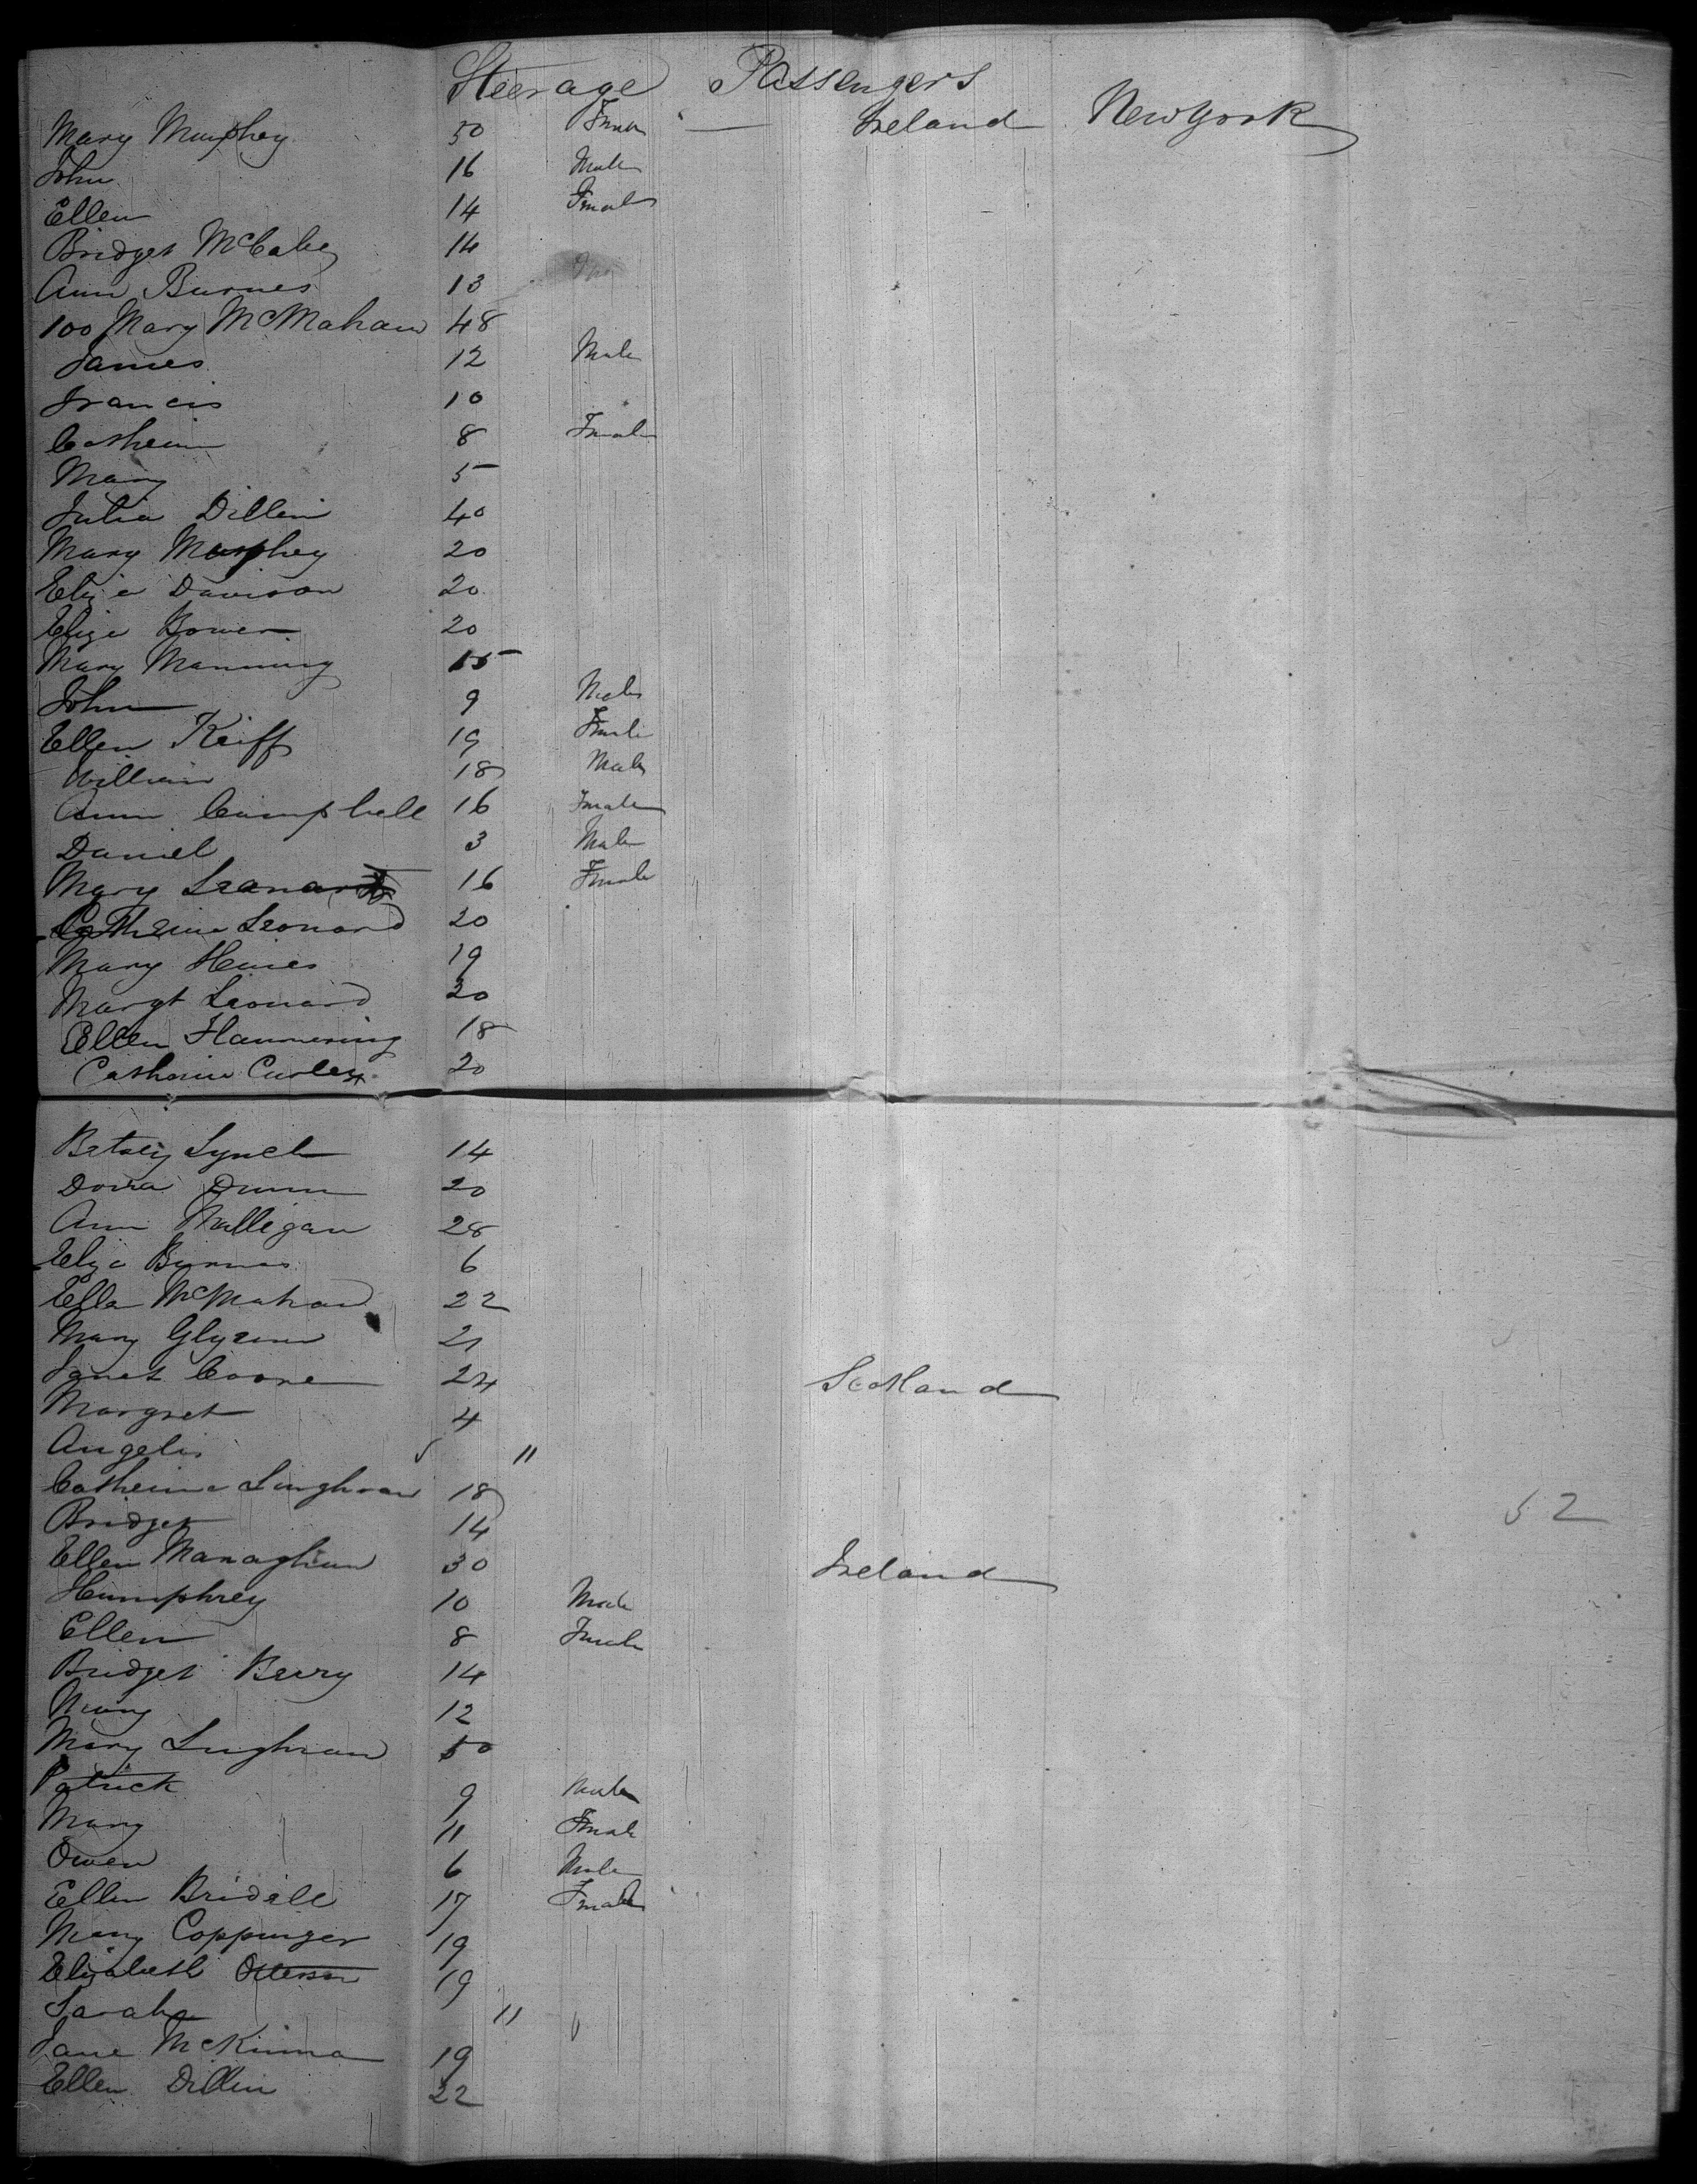 Steerage Passengers
Mary Murphey 50 Female — Ireland New York
John 16 Male
Ellen 14 Female
Bridget McCabe 14
Ann Burnes 13
100 Mary McMahan 48
James 12 Male
Francis 10
Catherin 8 Female
Mary 5
Julia Dillin 40
Mary Murphey 20
Eliza Davison 20
Eliza Bower 20
Mary Manning 15
John 9 Male
Ellen Keiff 19 Female
William 18 Male
Ann Campbell 16 Female
Daniel 3 Male
Mary Leanard 16 Female
Catherine Leonard 20
Mary Heines 19
Margt Leonard 20
Ellen Hammering 18
Catherine Curley 20
Betsey Lynch 14
Dora Dunn 20
Ann Mulligan 28
Eliza Byrnes 6
Ellen McMahan 22
Mary Glynn 21
Janet Coone 24 Scotland
Margret 4
Angelis 11
Catherine Loughran 18
Bridget 14
52
Ellen Managhan 30 Ireland
Humphrey 10 Male
Ellen 8 Female
Bridget Berry 14
Mary 12
Mary Lughran 50
Patrick 9 Male
Mary 11 Female
Owen 6 Male
Ellen Bridell 17 Female
Mary Coppinger 19
Elizabeth 19
Sarah 11
Jane McKinna 19
Ellen Dillin 22